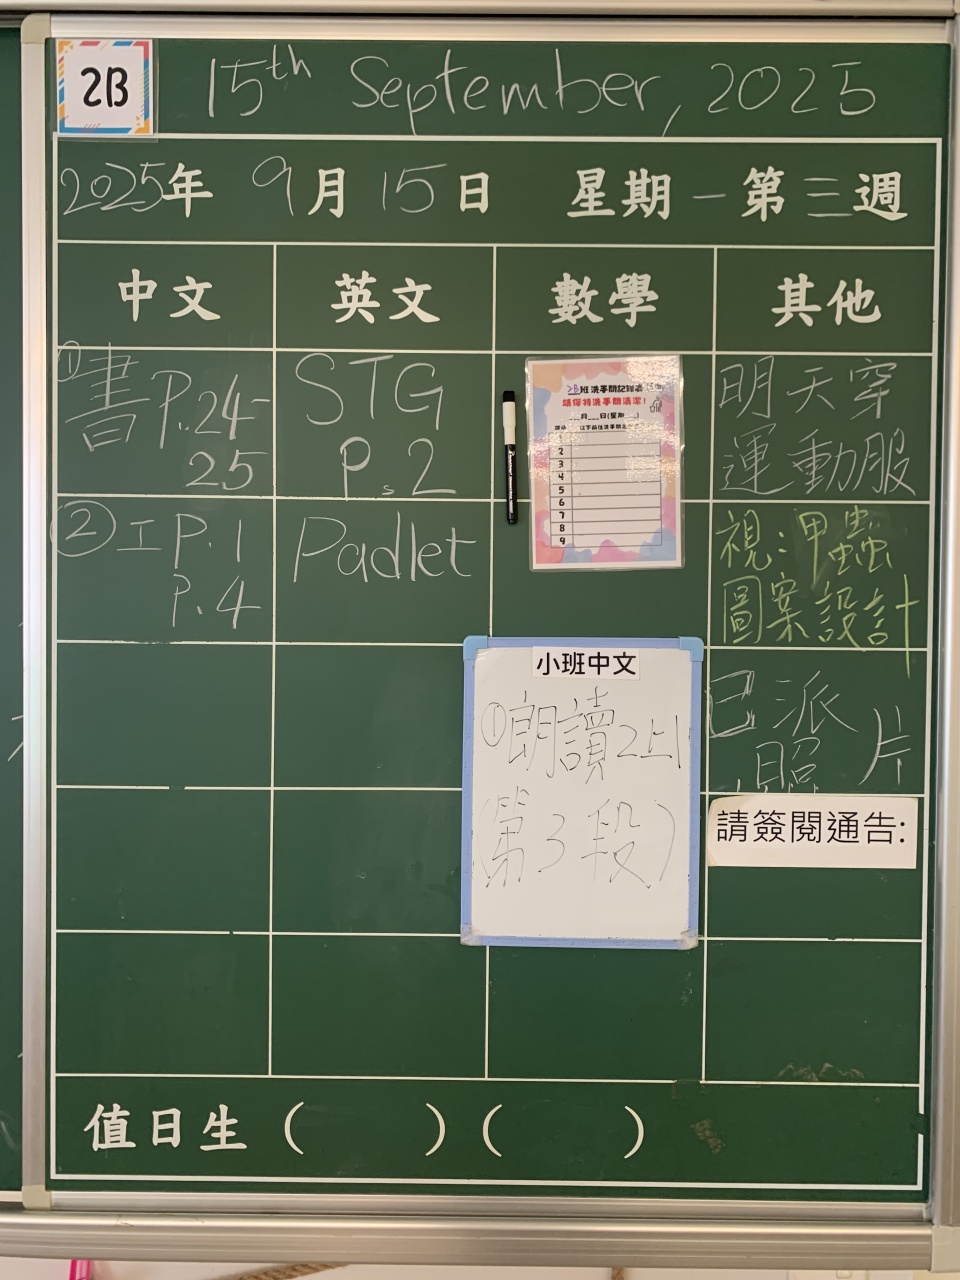 2B
15th September, 2025
2025年 9月 15日 星期一 第三週
中文 英文 數學 其他
①書 P.24-
25
STG
P.2
2B班洗手間記錄表
請保持洗手間清潔!
月 日(星期 )
1
2
3
4
5
6
7
8
9
明天穿
運動服
②工 P.1
P.4
Padlet
視:甲蟲
圖案設計
小班中文
①朗讀2上1
(第3段)
已派
照片
請簽閱通告:
值日生 ( ) ( )